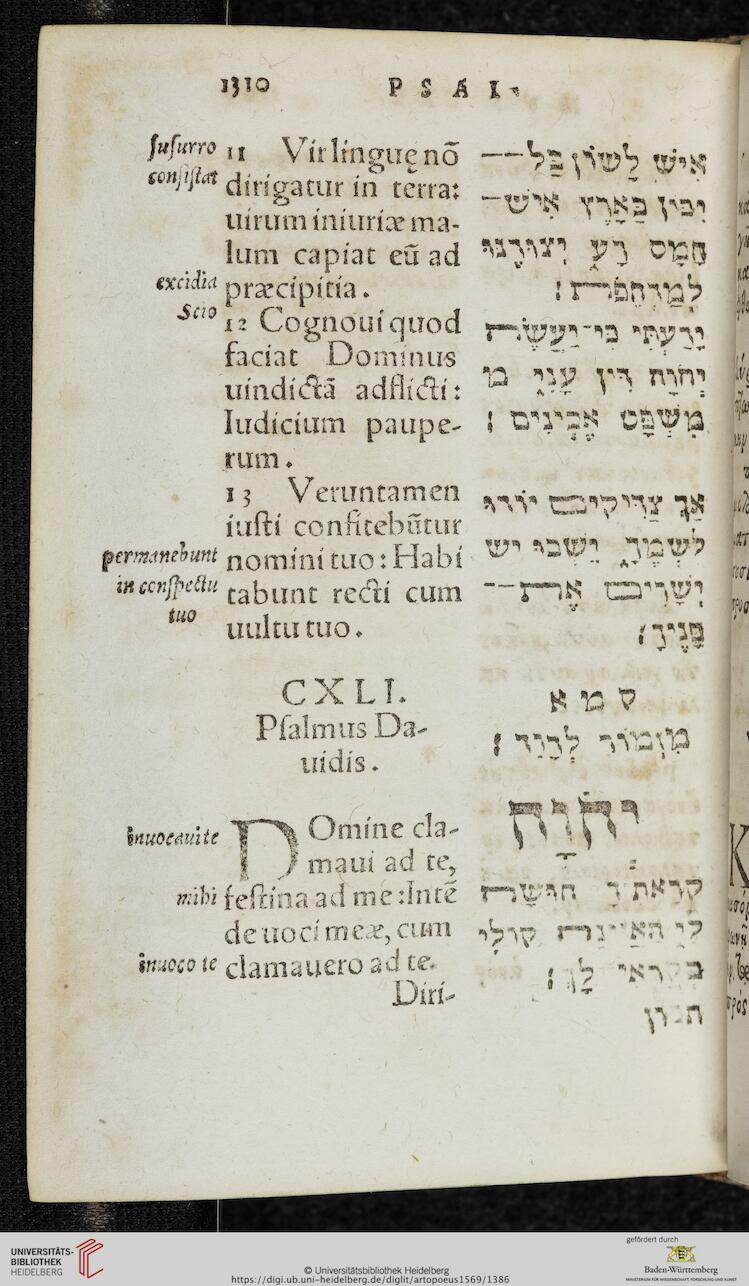 1310 PSAL.
susurro
consistat
excidia
Scio
permanebunt
in conspectu
tuo
inuocaui te
mihi
inuoco te
11 Vir linguę nõ
dirigatur in terra:
uirum iniuriæ ma-
lum capiat eũ ad
præcipitia.
12 Cognoui quod
faciat Dominus
uindictã adflicti:
Iudicium paupe-
rum.
13 Veruntamen
iusti confitebũtur
nomini tuo: Habi
tabunt recti cum
uultu tuo.
CXLI.
Psalmus Da-
uidis.
DOmine cla-
maui ad te,
festina ad me: Intẽ
de uoci meæ, cum
clamauero ad te.
Diri-
אִישׁ לָשׁוֹן בַּל
יִכּוֹן בָּאָרֶץ אִישׁ
חָמָס רָע יְצוּדֶנּוּ
לְמַדְחֵפֹת׃
יָדַעְתִּי כִּי־יַעֲשֶׂה
יְהֹוָה דִּין עָנִי מ
מִשְׁפַּט אֶבְיֹנִים׃
אַךְ צַדִּיקִים יוֹדוּ
לִשְׁמֶךָ יֵשְׁבוּ יש
יְשָׁרִים אֶת
פָּנֶיךָ׃
ק מ א
מִזְמוֹר לְדָוִד׃
יְהֹוָה
קְרָאתִיךָ חוּשָׁה
לִּי הַאֲזִינָה קוֹלִי
בְּקָרְאִי לָךְ׃
תכון
UNIVERSITÄTS-
BIBLIOTHEK
HEIDELBERG
© Universitätsbibliothek Heidelberg
https://digi.ub.uni-heidelberg.de/diglit/artopoeus1569/1386
gefördert durch
Baden-Württemberg
MINISTERIUM FÜR WISSENSCHAFT, FORSCHUNG UND KUNST